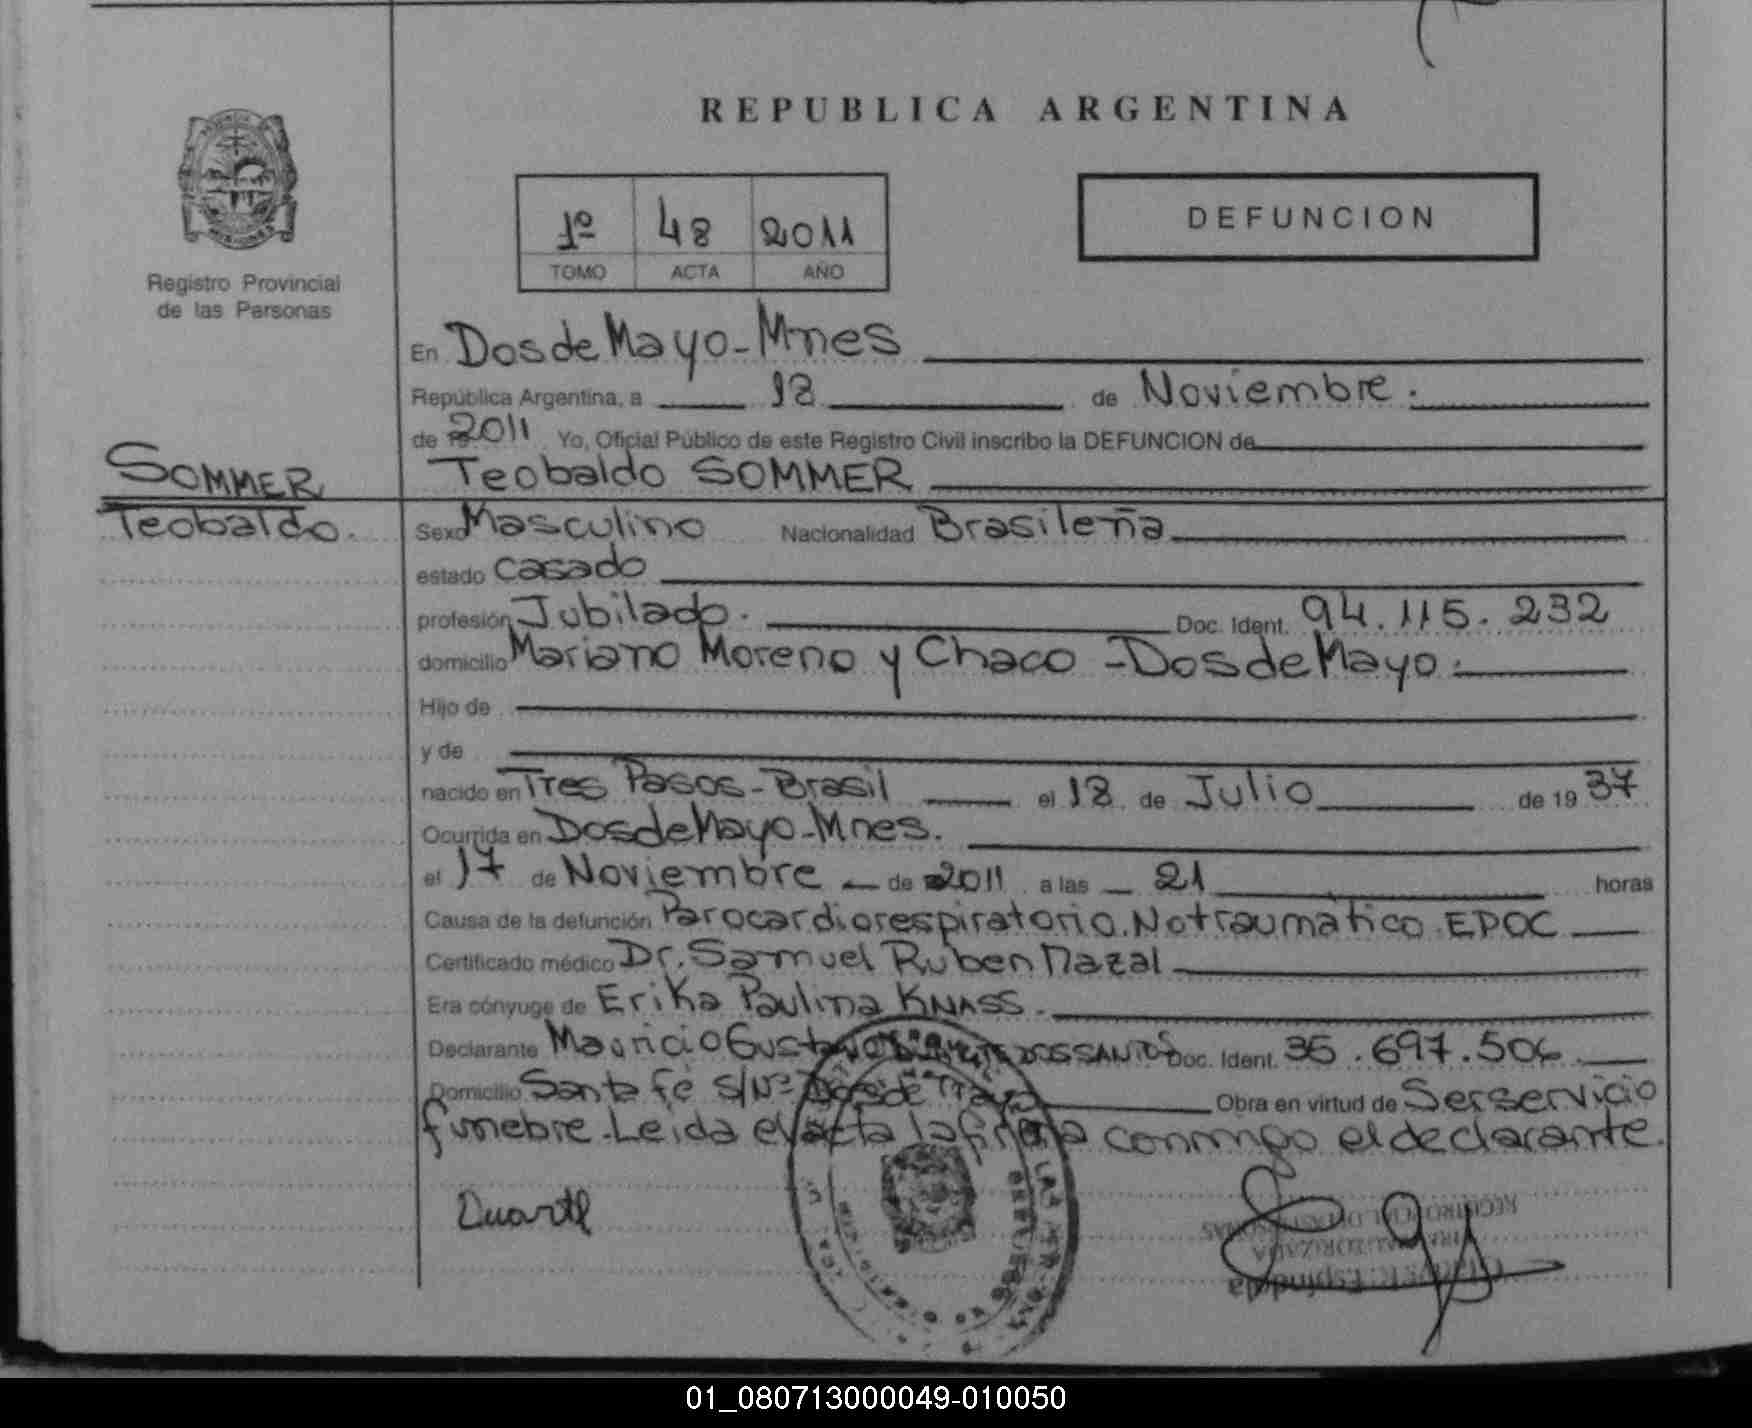 REPUBLICA ARGENTINA
Registro Provincial
de las Personas
1º 48 2011
TOMO ACTA AÑO
DEFUNCION
En Dos de Mayo - Mnes
República Argentina, a 18 de Noviembre.
de 2011 Yo, Oficial Público de este Registro Civil inscribo la DEFUNCION de
Teobaldo SOMMER
SOMMER
Teobaldo.
Sexo Masculino Nacionalidad Brasileña
estado casado
profesión Jubilado. Doc. Ident. 94.115.232
domicilio Mariano Moreno y Chaco - Dos de Mayo.
Hijo de
y de
nacido en Tres Pasos - Brasil el 18 de Julio de 19 37
Ocurrida en Dos de Mayo - Mnes.
el 17 de Noviembre de 2011 a las 21 horas
Causa de la defunción Parocardiorespiratorio. No traumático EPOC
Certificado médico Dr. Samuel Ruben Nazal
Era cónyuge de Erika Paulina KNASS.
Declarante Mauricio Gustavo DOS SANTOS Doc. Ident. 35.697.506
Domicilio Santa fé s/Nº Dos de Mayo Obra en virtud de Ser servicio
funebre. Leida el acta la firma conmigo el declarante.
Duarte
01_080713000049-010050